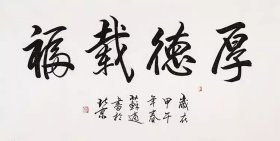 厚德載福
歲在
甲午
年春
蘇適
書於
北京